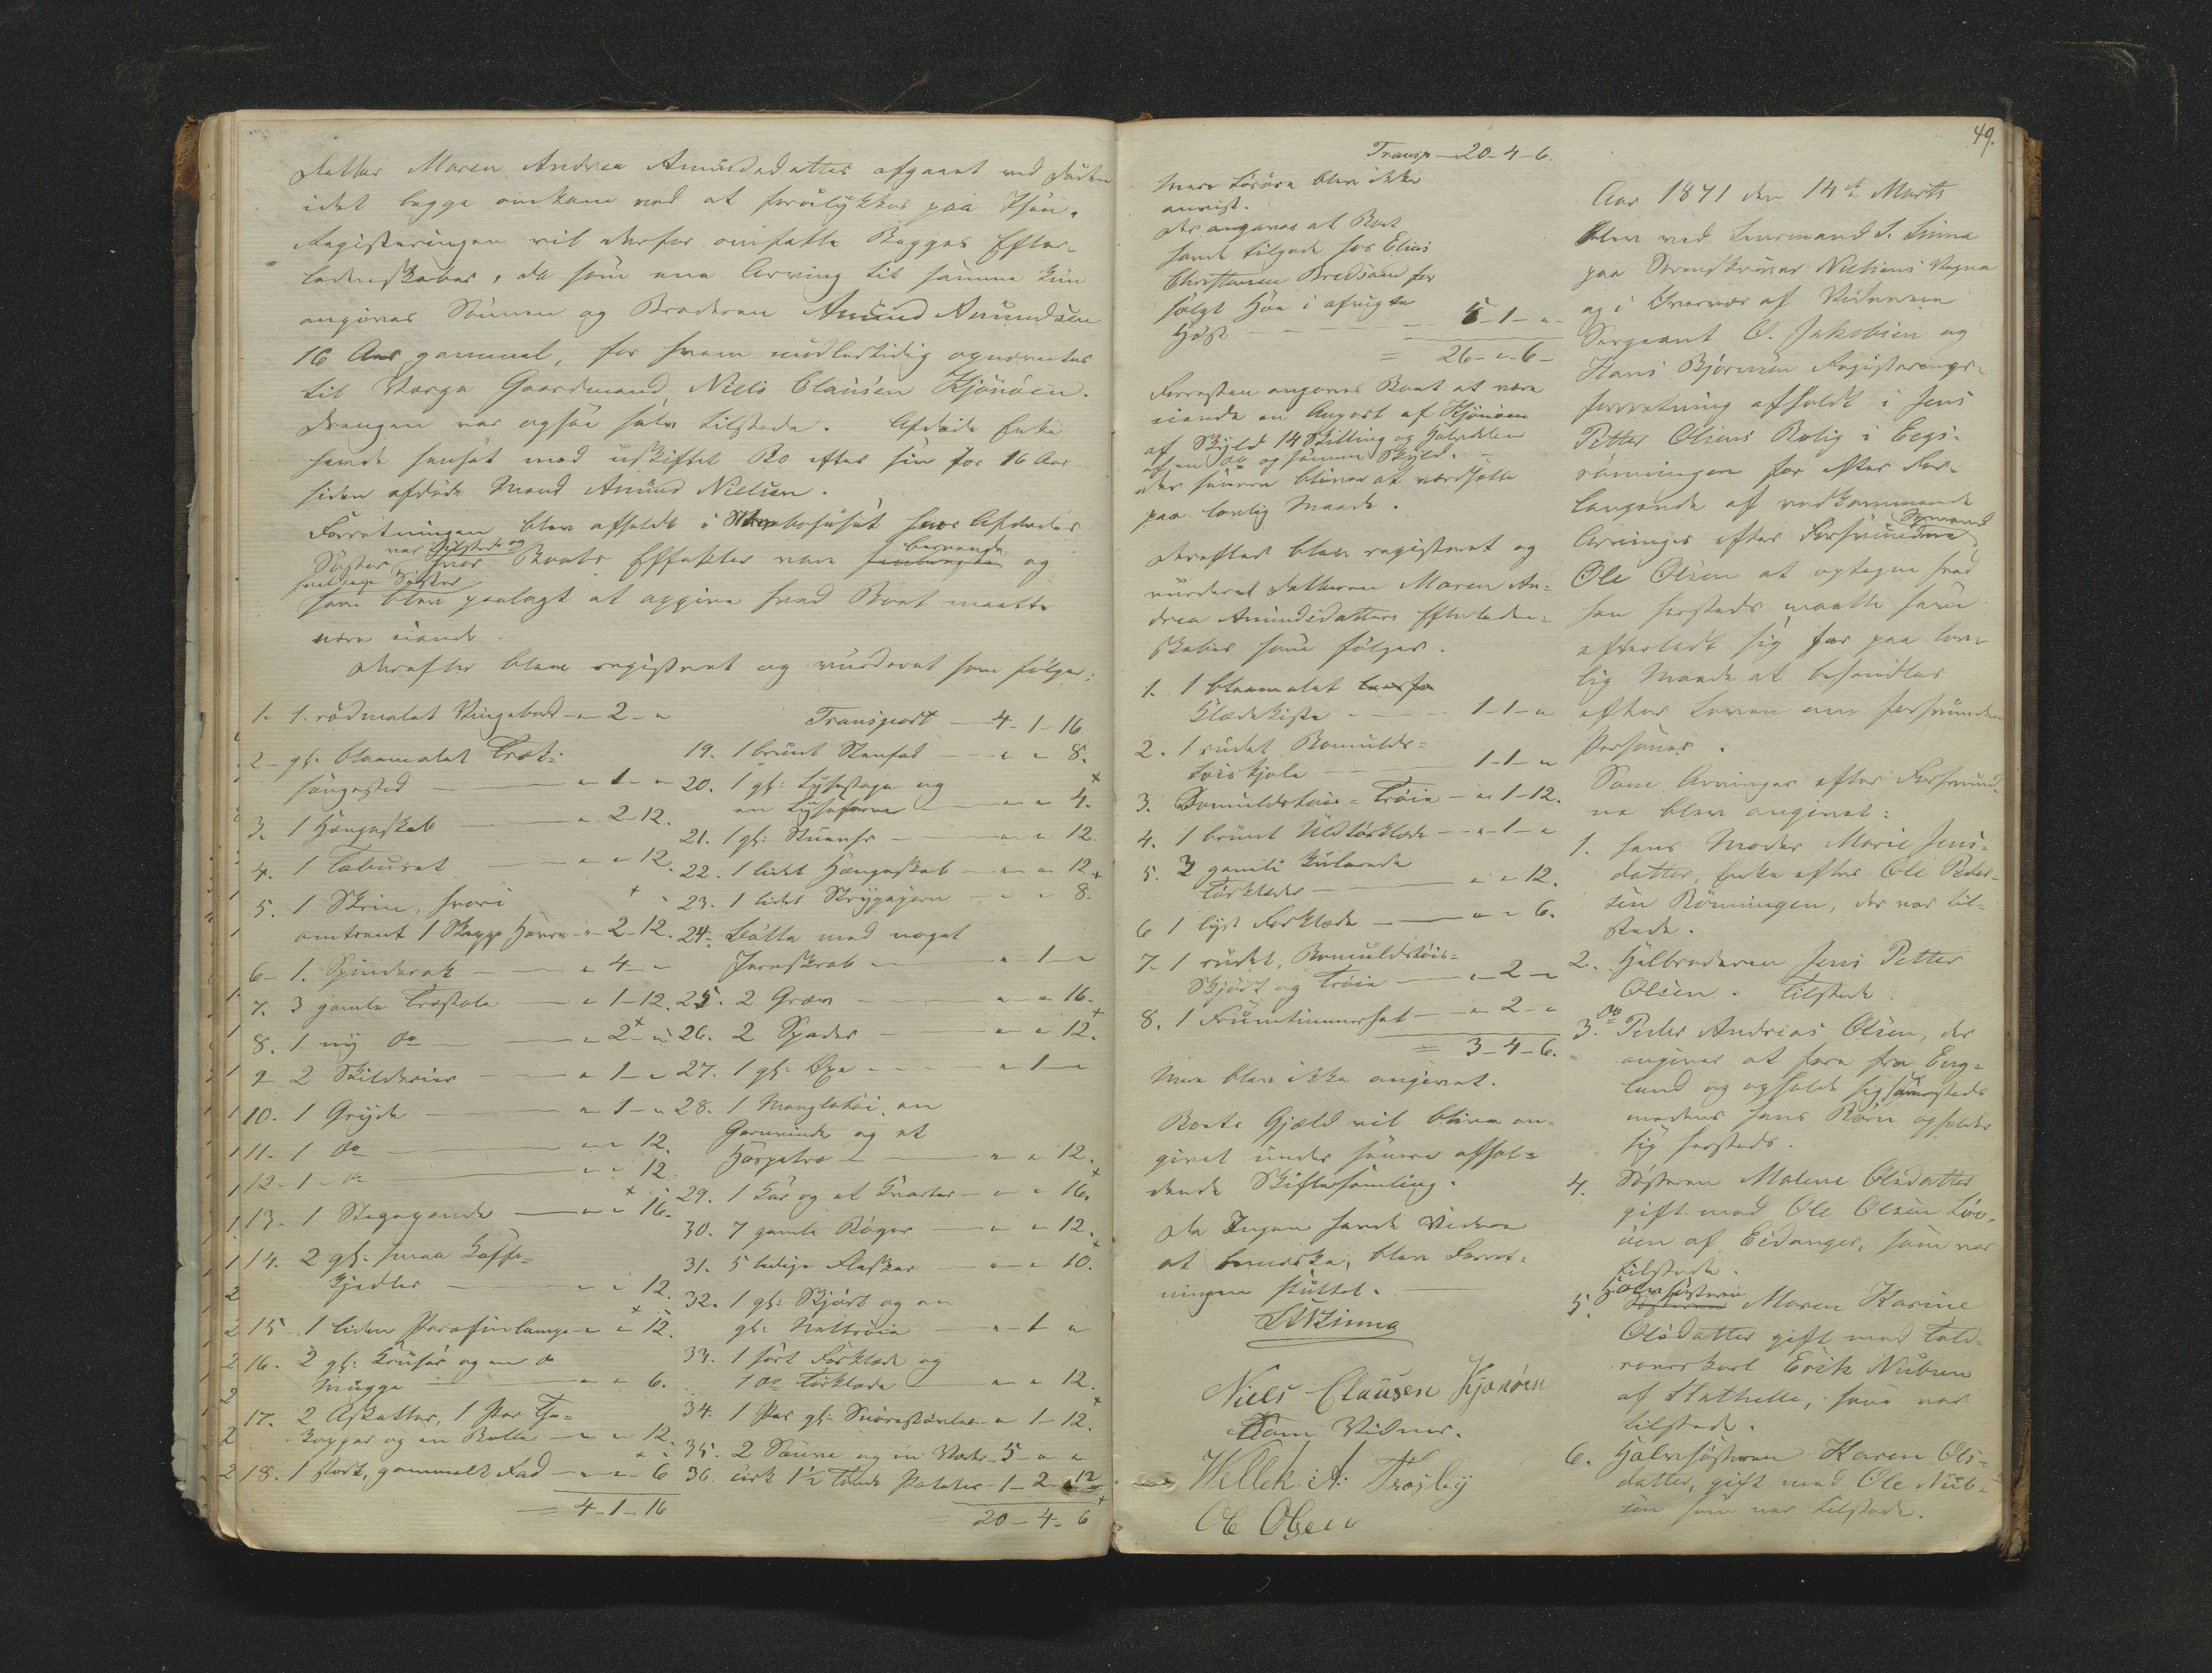 Datter Maren Andrea Amundsdatter afgaaet ved Døden
idet begge omkom ved at forulykkes paa Isen.
Registreringen vil derfor omfatte Begges Efter-
ladenskaber, da som ene Arving til samme kun
angives Sønnen og Broderen Amund Amundsen
16 Aar gammel, for hvem midlertidig opnævntes
til Værge Gaardmand Niels Clausen Kjønøen.
Drengen var ogsaa selv tilstede. Afdøde Enke
havde hensat med uskiftet Bo efter sin for 16 Aar
siden afdøde Mand Amund Nielsen.
Forretningen blev afholdt i Sterbohuset hvor Afdødes
Søster var tilstede og hvor Boets Effekter vare beroende og
hvilken Søster
som blev paalagt at opgive hvad Boet maatte
være eiende.
Derefter blev registreret og vurderet som følger:
1. 1 rødmalet Vingebord - " 2 - "
2 - gl. blaamalet Træk-
sengested - " 1 - "
3. 1 Hængeskab - " 2 - 12.
4. 1 Tabouret - " " 12.
5. 1 Skrin, hvori
omtrent 1 Skjeppe Havre - " 2 - 12.
6 - 1. Spinderok - " 4 - "
7. 3 gamle Træstole - " 1 - 12.
8. 1 ny do - " 2 - "
9 - 2 Skilderier - " 1 - "
10. 1 Gryde - " 1 - "
11. 1 do - " " 12.
12 - 1 - do - " " 12.
13. 1 Stegepande - " " 16.
14. 2 gl: smaa Kaffe-
kjedler - " " 12.
15 1 liden Parafinlampe - " " 12.
16. 2 gl: Kruser og en do
Mugge - " " 6.
17. 2 Asketter, 1 Par The-
kopper og en Bolle - " " 12.
18. 1 stort, gammelt Fad - " " 6
= 4 - 1 - 16
Transport - 4 - 1 - 16
19. 1 brunt Stenfad - " " 8.
20. 1 gl: Lysestage og
en Lyseform - " " 4.
21. 1 gl: Stueuhr - " " 12.
22. 1 lidet Hængeskab - " " 12.
23. 1 lidet Strygejern - " " 8.
24. Bøtte med noget
Jernskrab - " 1 - "
25. 2 Græv - " " 16.
26. 2 Spader - " " 12.
27. 1 gl: Øxe - " 1 - "
28. 1 Mangletøi, en
Garnvinde og et
Haspetræ - " " 12.
29. 1 Kar og et Kvarter - " " 16.
30. 7 gamle Bøger - " " 12.
31. 5 ledige Flasker - " " 10.
32. 1 gl: Skjørt og en
gl: Nattrøie - " 1 - "
33. 1 sort Forklæde og
1 do Tørklæde - " " 12.
34. 1 Par gl: Snørestøvler - " 1 - 12.
35. 2 Sauer og en Væder - 5 - " "
36. cirk 1½ Tønde Poteter - 1 - 2 - 12
= 20 - 4 - 6
49.
Transp - 20 - 4 - 6.
Mere Løsøre blev ikke
anvist.
Der angaves at Boet
havde tilgode hos Elias
Christensen Bredsand for
solgt Høe i afvigte
Høst - 5 - 1 - "
= 26 - " - 6 -
Forresten angaves Boet at være
eiende en Anpart af Kjønøen
af Skyld 14 Skilling og Halvdelen
af en do og samme Skyld.
der senere bliver at værdsætte
paa lovlig Maade.
Derefter blev registreret og
vurderet Datteren Maren An-
drea Amundsdatters Efterladen-
skaber som følger.
1. 1 blaamalet
Klædekiste - 1 - 1 - "
2. 1 rudet Bomulds-
tøiskjole - 1 - 1 - "
3. Bomuldstøis-Trøie - " 1 - 12.
4. 1 brunt Uldtørklæde - " 1 - "
5. 2 gamle kulørede
Tørklæder - " " 12.
6 1 lyst Forklæde - " " 6.
7. 1 rudet, Bomuldstøis-
Skjørt og Trøie - " 2 - "
8. 1 Fruentimmerhat - " 2 - "
= 3 - 4 - 6.
Mere blev ikke angivet.
Boets Gjæld vil blive an-
givet under senere afhol-
dende Skiftesamling.
Da Ingen havde Videre
at bemærke, blev Forret-
ningen sluttet.
S Linna
Niels Clausen Kjønøen
Som Vidner.
Wellek: A: Trosby
Ole Olsen
Aar 1871 den 14de Marts
blev ved Lensmand S. Linna
paa Sorenskriver Nielsens Vegne
og i Overvær af Vidnerne
Sergeant O. Jakobsen og
Hans Bjørnsen Registrerings-
forretning afholdt i Jens
Petter Olsens Bolig i Eegs-
rønningen for efter For-
langende af vedkommende
Arvinger efter Forsvundne Sømand
Ole Olsen at optegne hvad
han hersteds maatte have
efterladt sig for paa lov-
lig Maade at behandles
efter Loven om forsvundne
Personer.
Som Arvinger efter Forsvund-
ne blev angivet:
1. hans Moder Marie Jens-
datter, Enke efter Ole Peder-
sen Rønningen, der var til-
stede.
2. Halbroderen Jens Petter
Olsen. Tilstede.
3. do Peder Andreas Olsen, der
angives at fare fra Eng-
land og opholde sig sammesteds
medens hans Børn opholder
sig hersteds.
4. Søsteren Malene Olsdatter
gift med Ole Olsen Løv-
øen af Eidanger, som var
tilstede.
5 Halvsøsteren Maren Karine
Olsdatter gift med Told-
roerskarl Erik Nubsen
af Stathelle, som var
tilstede.
6. Halvsøsteren Karen Ols-
datter, gift med Ole Nub-
sen som var tilstede.